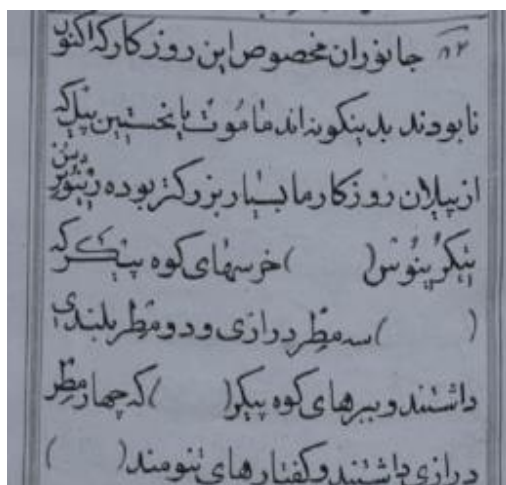 ۸۲ جانوران مخصوص این روزگار که اکنون
نابودند بدینگونه‌اند مامُوت یا نخستین پیل که
از پیلان روزگار ما بسیار بزرگتر بوده
( ) خرسهای کوه پیکر که
( ) سه مطر درازی و دو مطر بلندی
داشتند و ببرهای کوه پیکر ( ) که چهار مطر
درازی داشتند و کفتارهای تنومند ( )